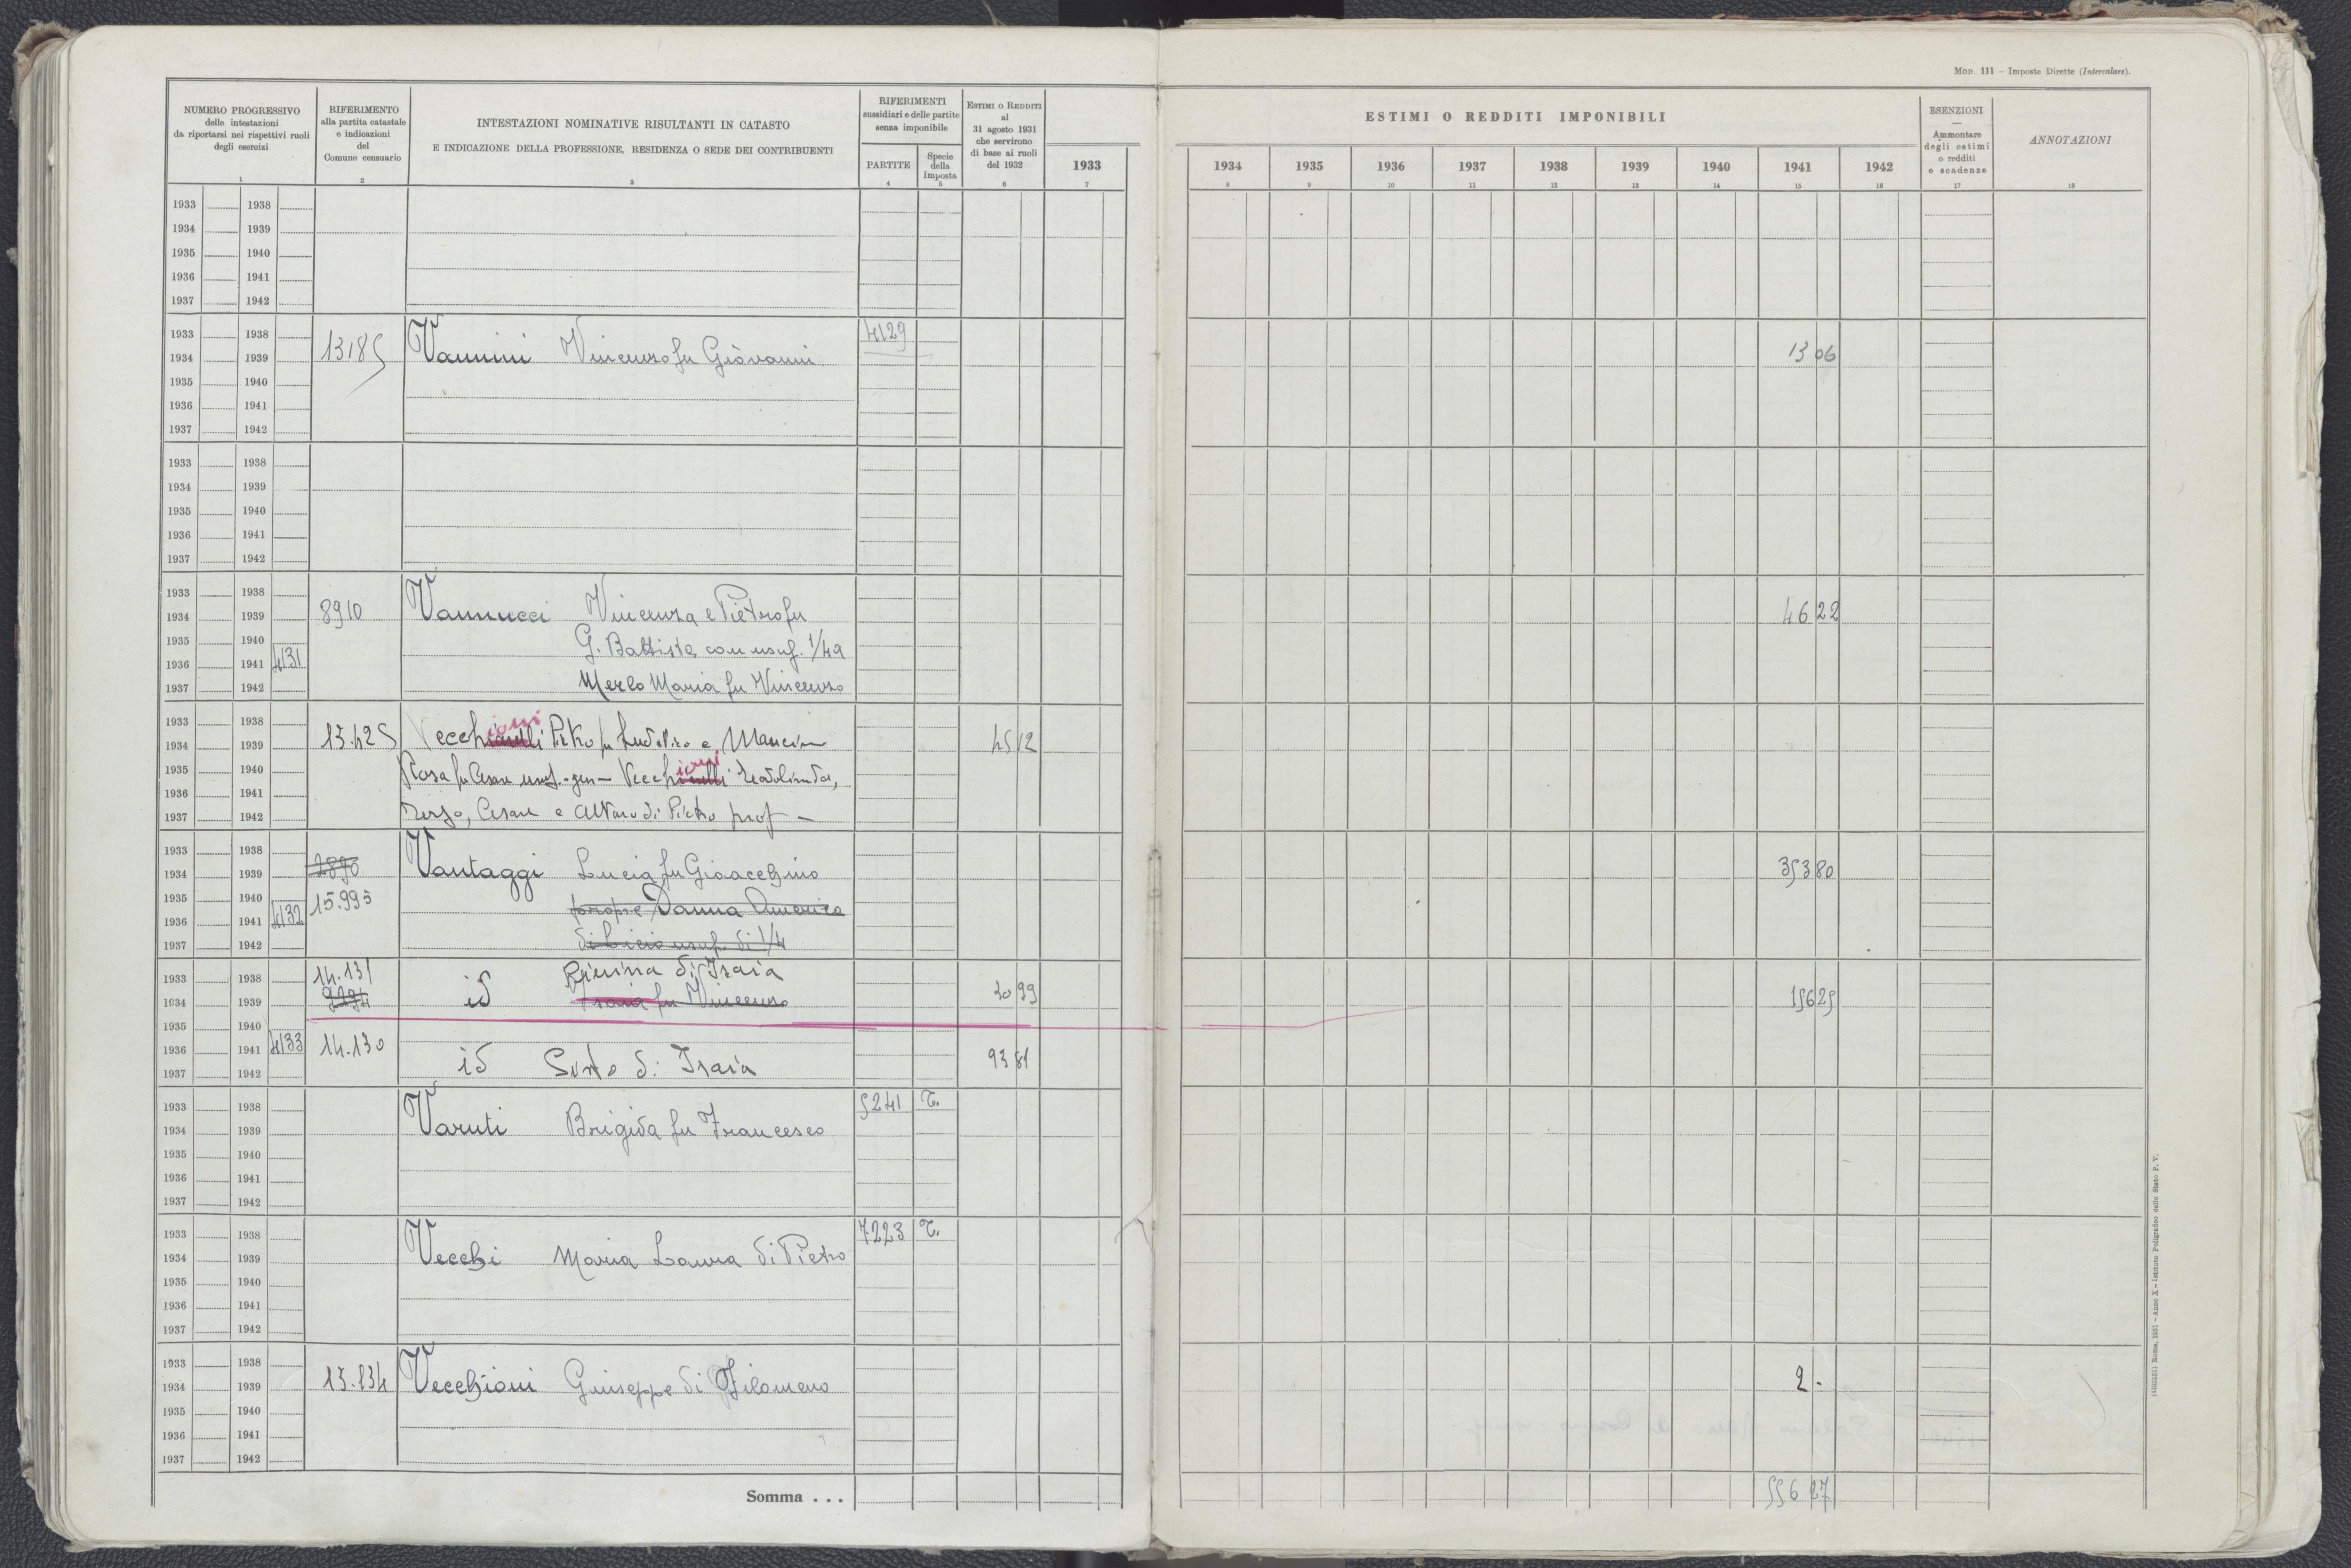 Mod. 111 – Imposte Dirette (Intercalare).
NUMERO PROGRESSIVO
delle intestazioni
da riportarsi nei rispettivi ruoli
degli esercizi
1
RIFERIMENTO
alla partita catastale
e indicazioni
del
Comune censuario
2
INTESTAZIONI NOMINATIVE RISULTANTI IN CATASTO
E INDICAZIONE DELLA PROFESSIONE, RESIDENZA O SEDE DEI CONTRIBUENTI
3
RIFERIMENTI
sussidiari e delle partite
senza imponibile
PARTITE
4
Specie
della
imposta
5
Estimi o Redditi
al
31 agosto 1931
che servirono
di base ai ruoli
del 1932
6
1933
7
ESTIMI O REDDITI IMPONIBILI
1934 1935 1936 1937 1938 1939 1940 1941 1942
8 9 10 11 12 13 14 15 16
ESENZIONI
—
Ammontare
degli estimi
o redditi
e scadenze
17
ANNOTAZIONI
18
1933 1938
1934 1939
1935 1940
1936 1941
1937 1942
1933 1938 4129
1934 1939 13185 Vannini Vincenzo fu Giovanni 13 06
1935 1940
1936 1941
1937 1942
1933 1938
1934 1939
1935 1940
1936 1941
1937 1942
1933 1938
1934 1939 8910 Vannucci Vincenza e Pietro fu 46 22
1935 1940 G. Battista con usuf. 1/4 a
1936 1941 4131
1937 1942 Merlo Maria fu Vincenzo
1933 1938 ioni
1934 1939 13.425 Vecchiarelli Pietro fu e Mancini 45 12
1935 1940 Rosa fu Cesare usuf. - gen - Vecchi ioni
1936 1941
1937 1942 Cesare e Alvaro di Pietro prof -
1933 1938 2890
1934 1939 Vantaggi Lucia fu Gioacchino 353 80
1935 1940 15.995
1936 1941 4132 propr Danna America
1937 1942 di Licio usuf. di 1/4
1933 1938 14.131 di Isaia
1934 1939 2294 id Isaia fu Vincenzo 20 99 156 29
1935 1940
1936 1941 4133 14.130
1937 1942 id Sisto di Isaia 93 81
1933 1938 5241 T.
1934 1939 Varuti Brigida fu Francesco
1935 1940
1936 1941
1937 1942
1933 1938 7223 T.
1934 1939 Vecchi Maria Laura di Pietro
1935 1940
1936 1941
1937 1942
1933 1938
1934 1939 13.234 Vecchioni Giuseppe di Filomeno 2 -
1935 1940
1936 1941
1937 1942
Somma . . . 556 27
Roma, 1931 – Anno X – Istituto Poligrafico dello Stato P. V.